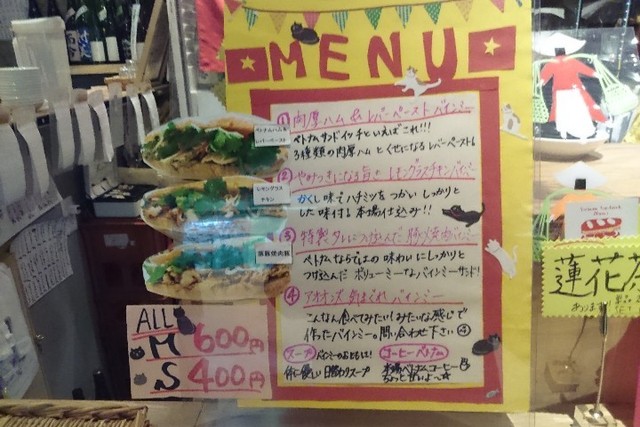 MENU
① 肉厚ハム & レバーペースト バインミー
ベトナムサンドイッチといえばこれ!!!
3種類の肉厚ハムとくせになるレバーペースト
② やみつきになる旨さ レモングラスチキンバインミー
かくし味でハチミツをつかい しっかりと
した味する 本場仕込み!!
③ 特製タレにつけ込んだ 豚焼肉バインミー
ベトナムならではの 味わいにしっかりと
つけ込んだ ボリューミーなバインミーサンド!
④ アオオンズ 気まぐれ バインミー
こんなん食べてみたい!みたいな感じで
作ったバインミー。問い合わせ下さい
スープ バインミーのおともに!
体に優しい 日替わりスープ
コーヒーベトナム
本場ベトナムコーヒー
ちょっと甘いよ〜
ベトナムハム&
レバーペースト
レモングラス
チキン
ALL
M 600円
S 400円
蓮花茶
あります!